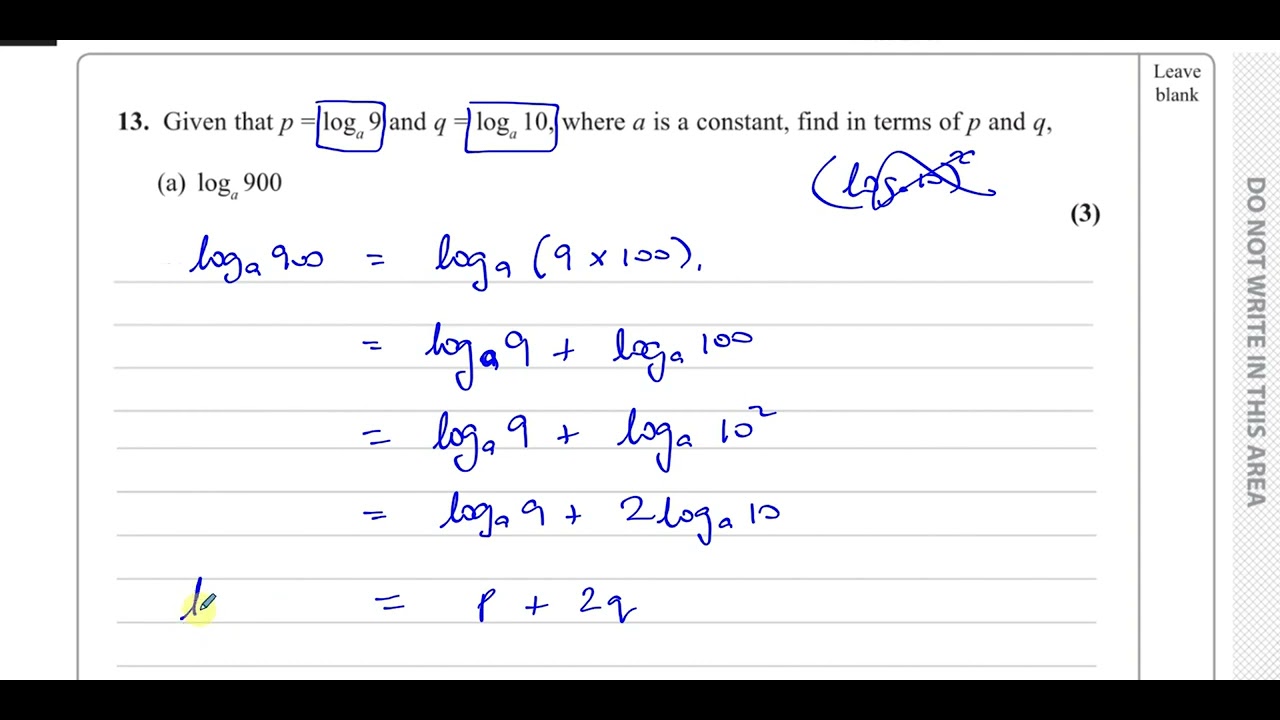 Leave
blank
13. Given that p = logₐ 9 and q = logₐ 10, where a is a constant, find in terms of p and q,
(a) logₐ 900
(3)
logₐ 900 = logₐ (9 × 100).
= logₐ 9 + logₐ 100
= logₐ 9 + logₐ 10²
= logₐ 9 + 2 logₐ 10
= p + 2q
DO NOT WRITE IN THIS AREA